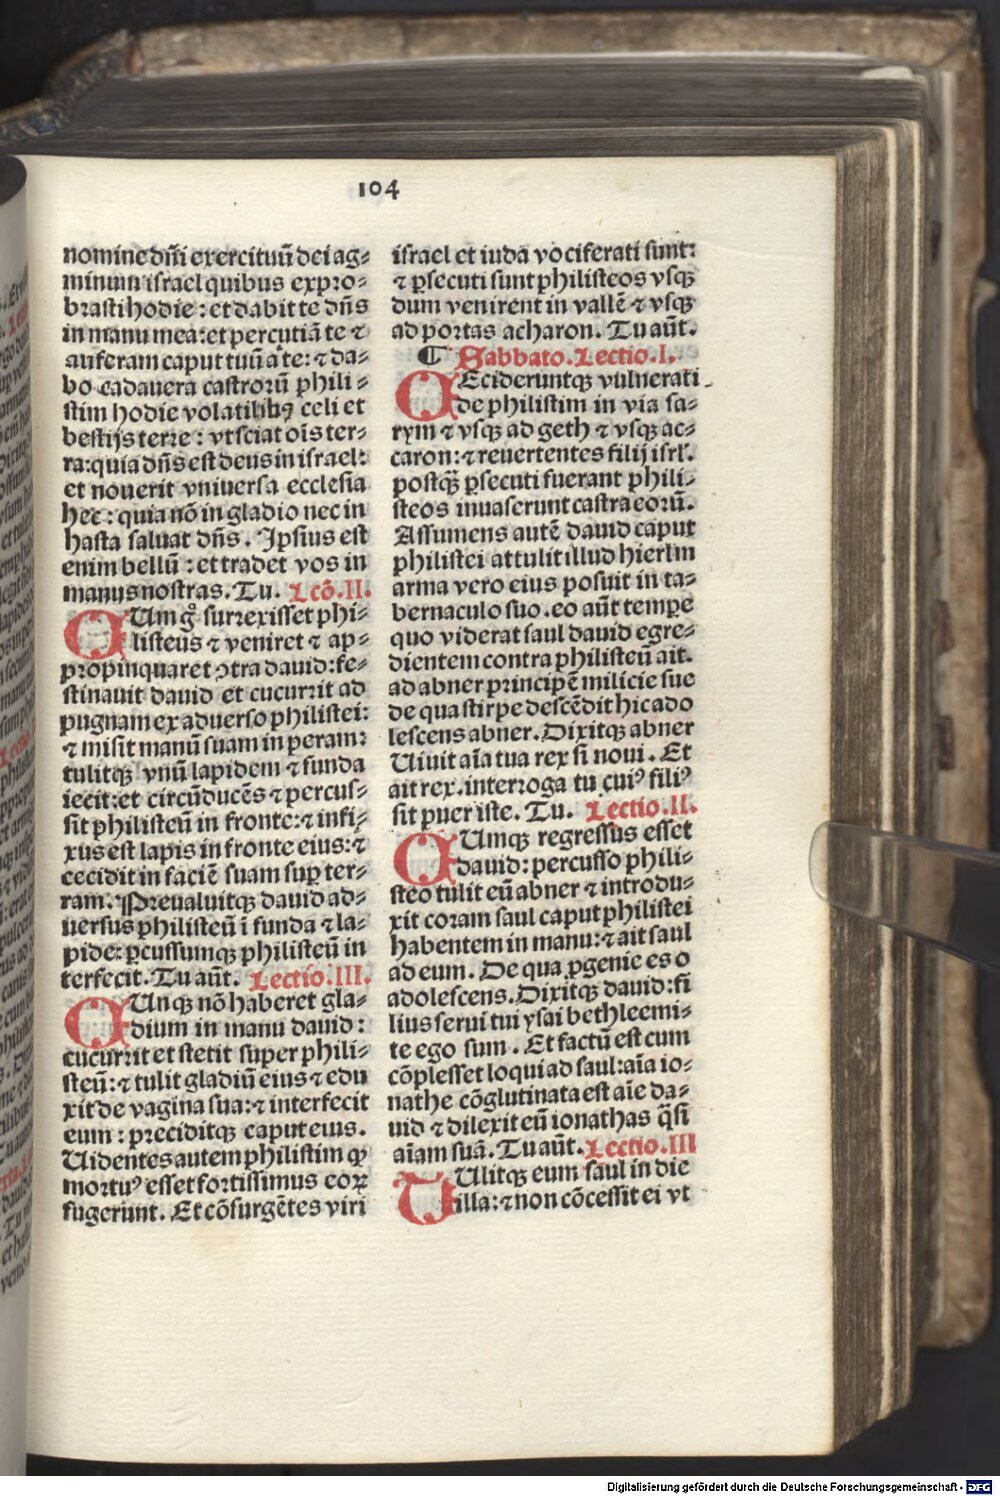 104
nomine dñi exercituũ dei ag⸗
minum israel quibus expro⸗
brasti hodie : et dabit te dñs
in manu mea: et percutiã te ⁊
auferam caput tuũ a te: ⁊ da⸗
bo cadauera castrorũ phili⸗
stim hodie volatilibꝰ celi et
bestijs terre : vt sciat oĩs ter⸗
ra: quia dñs est deus in israel:
et nouerit vniuersa ecclesia
hec : quia nõ in gladio nec in
hasta saluat dñs . Ipsius est
enim bellũ : et tradet vos in
manus nostras. Tu. Lcõ.II.
CUm gͦ surrexisset phi⸗
listeus ⁊ veniret ⁊ ap⸗
propinquaret ꝯtra dauid: fe⸗
stinauit dauid et cucurrit ad
pugnam ex aduerso philistei:
⁊ misit manũ suam in peram:
tulitqꝫ vnũ lapidem ⁊ funda
iecit: et circũducẽs ⁊ percus⸗
sit philisteũ in fronte: ⁊ infi⸗
xus est lapis in fronte eius: ⁊
cecidit in faciẽ suam suꝑ ter⸗
ram. Preualuitqꝫ dauid ad⸗
uersus philisteũ ĩ funda ⁊ la⸗
pide: ꝑcussumqꝫ philisteũ in
terfecit. Tu aũt. Lectio.III.
CUnqꝫ nõ haberet gla⸗
dium in manu dauid :
cucurrit et stetit super phili⸗
steũ: ⁊ tulit gladiũ eius ⁊ edu
xit de vagina sua: ⁊ interfecit
eum : preciditqꝫ caput eius.
Uidentes autem philistim ꝙ
mortuꝰ esset fortissimus eoꝝ
fugerunt. Et cõsurgẽtes viri
israel et iuda vociferati sunt:
⁊ ꝑsecuti sunt philisteos vsqꝫ
dum venirent in vallẽ ⁊ vsqꝫ
ad portas acharon. Tu aũt.
¶ Sabbato. Lectio.I.
CEcideruntqꝫ vulnerati
de philistim in via sa⸗
rym ⁊ vsqꝫ ad geth ⁊ vsqꝫ ac⸗
caron: ⁊ reuertentes filij isrl'.
postqꝫ̃ ꝑsecuti fuerant phili⸗
steos inuaserunt castra eorũ.
Assumens autẽ dauid caput
philistei attulit illud hierlm
arma vero eius posuit in ta⸗
bernaculo suo . eo aũt tempe
quo viderat saul dauid egre⸗
dientem contra philisteũ ait.
ad abner principẽ milicie sue
de qua stirpe descẽdit hic ado
lescens abner. Dixitqꝫ abner
Uiuit aĩa tua rex si noui . Et
ait rex. interroga tu cuiꝰ filiꝰ
sit puer iste. Tu. Lectio.II.
CUmqꝫ regressus esset
dauid: percusso phili⸗
steo tulit eũ abner ⁊ introdu⸗
xit coram saul caput philistei
habentem in manu: ⁊ ait saul
ad eum . De qua ꝓgenie es o
adolescens. Dixitqꝫ dauid: fi
lius serui tui ysai bethleemi⸗
te ego sum . Et factũ est cum
cõplesset loqui ad saul: aĩa io⸗
nathe cõglutinata est aĩe da⸗
uid ⁊ dilexit eũ ionathas q̃si
aĩam suã. Tu aũt. Lectio.III
TUlitqꝫ eum saul in die
illa: ⁊ non cõcessit ei vt
Digitalisierung gefördert durch die Deutsche Forschungsgemeinschaft - DFG